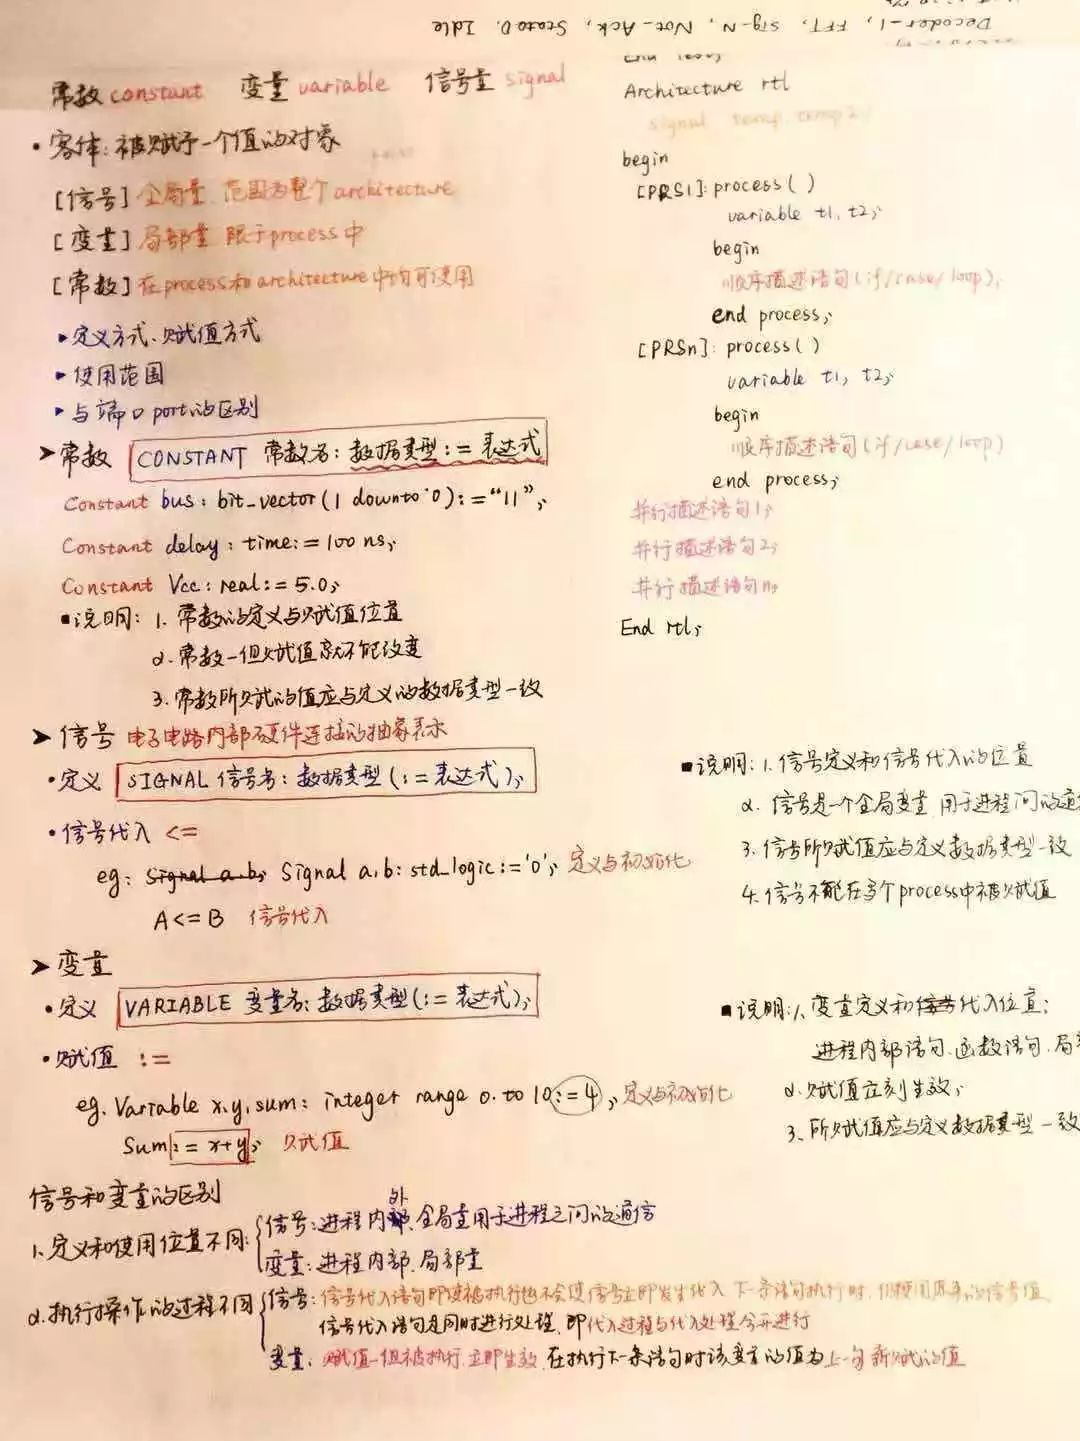 Decoder_1, FFT, Sig_N, Not_Ack, State0, Idle
常数 constant 变量 variable 信号量 signal
• 客体：被赋予一个值的对象
[信号] 全局量，范围为整个 architecture
[变量] 局部量，限于 process 中
[常数] 在 process 和 architecture 中均可使用
▸ 定义方式、赋值方式
▸ 使用范围
▸ 与端口 port 的区别
➤ 常数 CONSTANT 常数名：数据类型 := 表达式
Constant bus : bit_vector(1 downto 0) := “11”;
Constant delay : time := 100 ns;
Constant Vcc : real := 5.0;
▪ 说明：1. 常数的定义与赋值位置
2. 常数一但赋值就不能改变
3. 常数所赋的值应与定义的数据类型一致
➤ 信号 电子电路内部硬件连接的抽象表示
• 定义 SIGNAL 信号名：数据类型 (:= 表达式);
• 信号代入 <=
eg: Signal a,b; Signal a,b : std_logic := '0'; 定义与初始化
A <= B 信号代入
➤ 变量
• 定义 VARIABLE 变量名：数据类型 (:= 表达式);
• 赋值 :=
eg. Variable x,y,sum : integer range 0 to 10 := 4; 定义与初始化
Sum := x+y; 赋值
信号和变量的区别
1. 定义和使用位置不同：
信号：进程外部、全局量用于进程之间的通信
变量：进程内部、局部量
2. 执行操作的过程不同
信号：信号代入语句即使被执行也不会使信号立即发生代入 下一条语句执行时，仍使用原来的信号值
信号代入语句是同时进行处理，即代入过程与代入处理分开进行
变量：赋值一但被执行，立即生效，在执行下一条语句时该变量的值为上一句新赋的值
Architecture rtl
signal temp, temp2;
begin
[PRS1]: process()
variable t1, t2;
begin
顺序描述语句 (if/case/loop);
end process;
[PRSn]: process()
variable t1, t2;
begin
顺序描述语句 (if/case/loop)
end process;
并行描述语句1;
并行描述语句2;
并行描述语句n;
End rtl;
▪ 说明：1. 信号定义和信号代入的位置
2. 信号是一个全局变量，用于进程间的通
3. 信号所赋值应与定义数据类型一致
4. 信号不能在多个 process 中被赋值
▪ 说明：1. 变量定义和代入位置：
进程内部语句、函数语句、局
2. 赋值立刻生效；
3. 所赋值应与定义数据类型一致